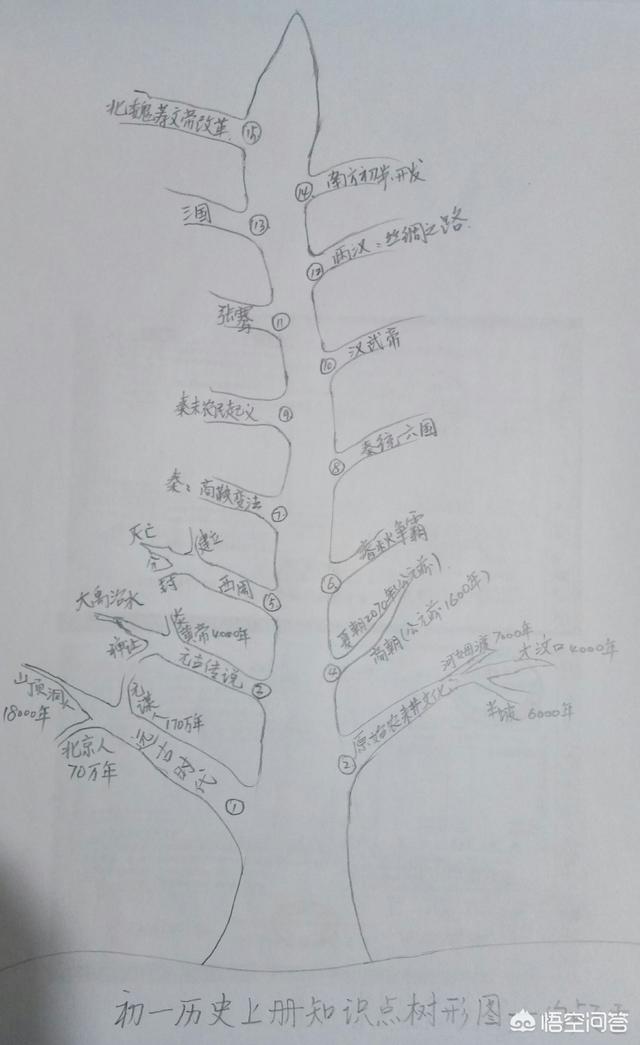 北魏孝文帝改革 ⑮
⑭ 南方初步开发
三国 ⑬
⑫ 两汉:丝绸之路
张骞 ⑪
⑩ 汉武帝
秦末农民起义 ⑨
⑧ 秦统六国
秦:商鞅变法 ⑦
⑥ 春秋争霸
灭亡
建立
分封
西周 ⑤
夏朝2070年(公元前)
④ 商朝(公元前1600年)
大禹治水
黄帝4000年
禅让
远古传说
河姆渡7000年
大汶口4000年
半坡 6000年
② 原始农耕文化
山顶洞人
18000年
元谋人
170万年
北京人
70万年
①
初一历史上册知识点树形图
悟空问答